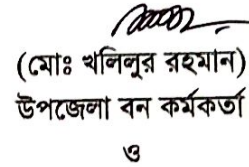 (মোঃ খলিলুর রহমান)
উপজেলা বন কর্মকর্তা
ও